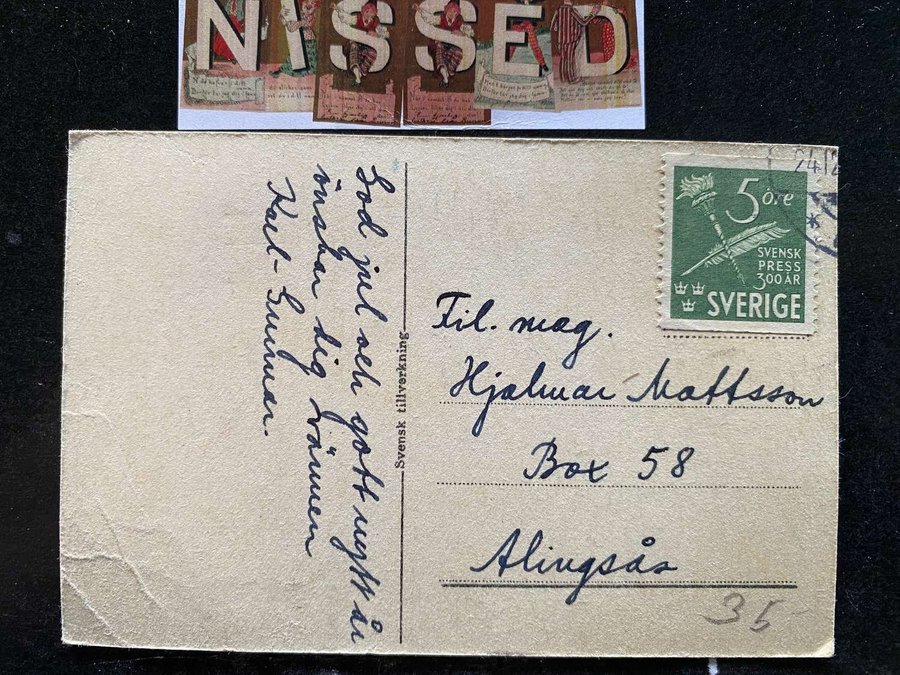 NISSED
God jul och gott nytt år
önskar dig vännen
Karl-Gunnar.
Svensk tillverkning
24 12
5 öre
SVENSK
PRESS
300 ÅR
SVERIGE
Fil. mag.
Hjalmar Mattsson
Box 58
Alingsås
35